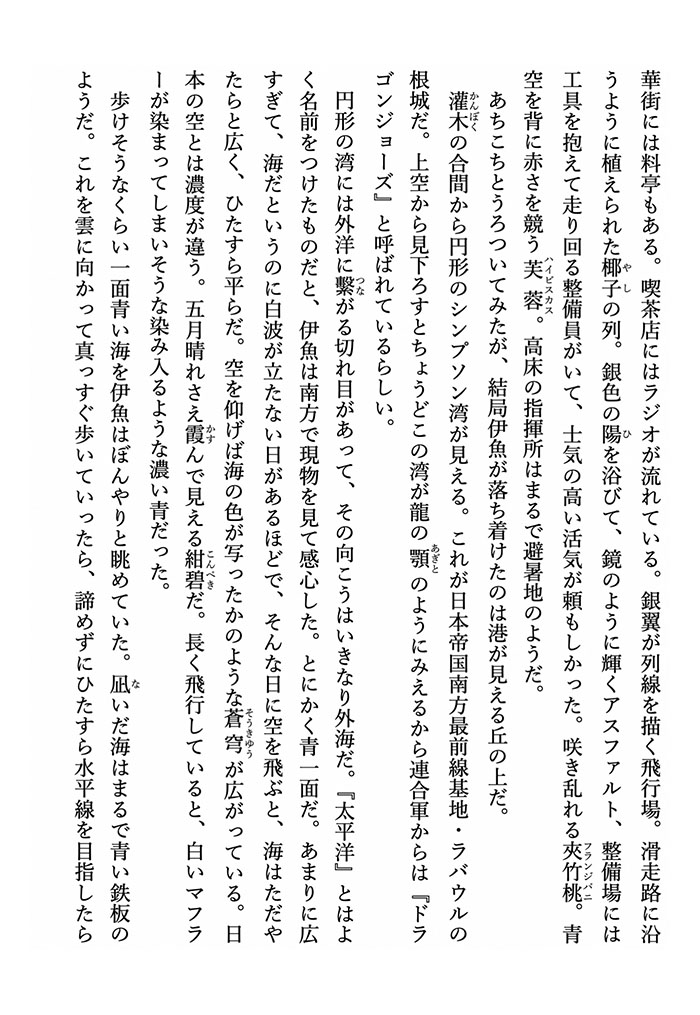 華街には料亭もある。喫茶店にはラジオが流れている。銀翼が列線を描く飛行場。滑走路に沿
うように植えられた椰子の列。銀色の陽を浴びて、鏡のように輝くアスファルト、整備場には
工具を抱えて走り回る整備員がいて、士気の高い活気が頼もしかった。咲き乱れる夾竹桃。青
空を背に赤さを競う芙蓉。高床の指揮所はまるで避暑地のようだ。
あちこちとうろついてみたが、結局伊魚が落ち着けたのは港が見える丘の上だ。
灌木の合間から円形のシンプソン湾が見える。これが日本帝国南方最前線基地・ラバウルの
根城だ。上空から見下ろすとちょうどこの湾が龍の顎のようにみえるから連合軍からは『ドラ
ゴンジョーズ』と呼ばれているらしい。
円形の湾には外洋に繋がる切れ目があって、その向こうはいきなり外海だ。『太平洋』とはよ
く名前をつけたものだと、伊魚は南方で現物を見て感心した。とにかく青一面だ。あまりに広
すぎて、海だというのに白波が立たない日があるほどで、そんな日に空を飛ぶと、海はただや
たらと広く、ひたすら平らだ。空を仰げば海の色が写ったかのような蒼穹が広がっている。日
本の空とは濃度が違う。五月晴れさえ霞んで見える紺碧だ。長く飛行していると、白いマフラ
ーが染まってしまいそうな染み入るような濃い青だった。
歩けそうなくらい一面青い海を伊魚はぼんやりと眺めていた。凪いだ海はまるで青い鉄板の
ようだ。これを雲に向かって真っすぐ歩いていったら、諦めずにひたすら水平線を目指したら